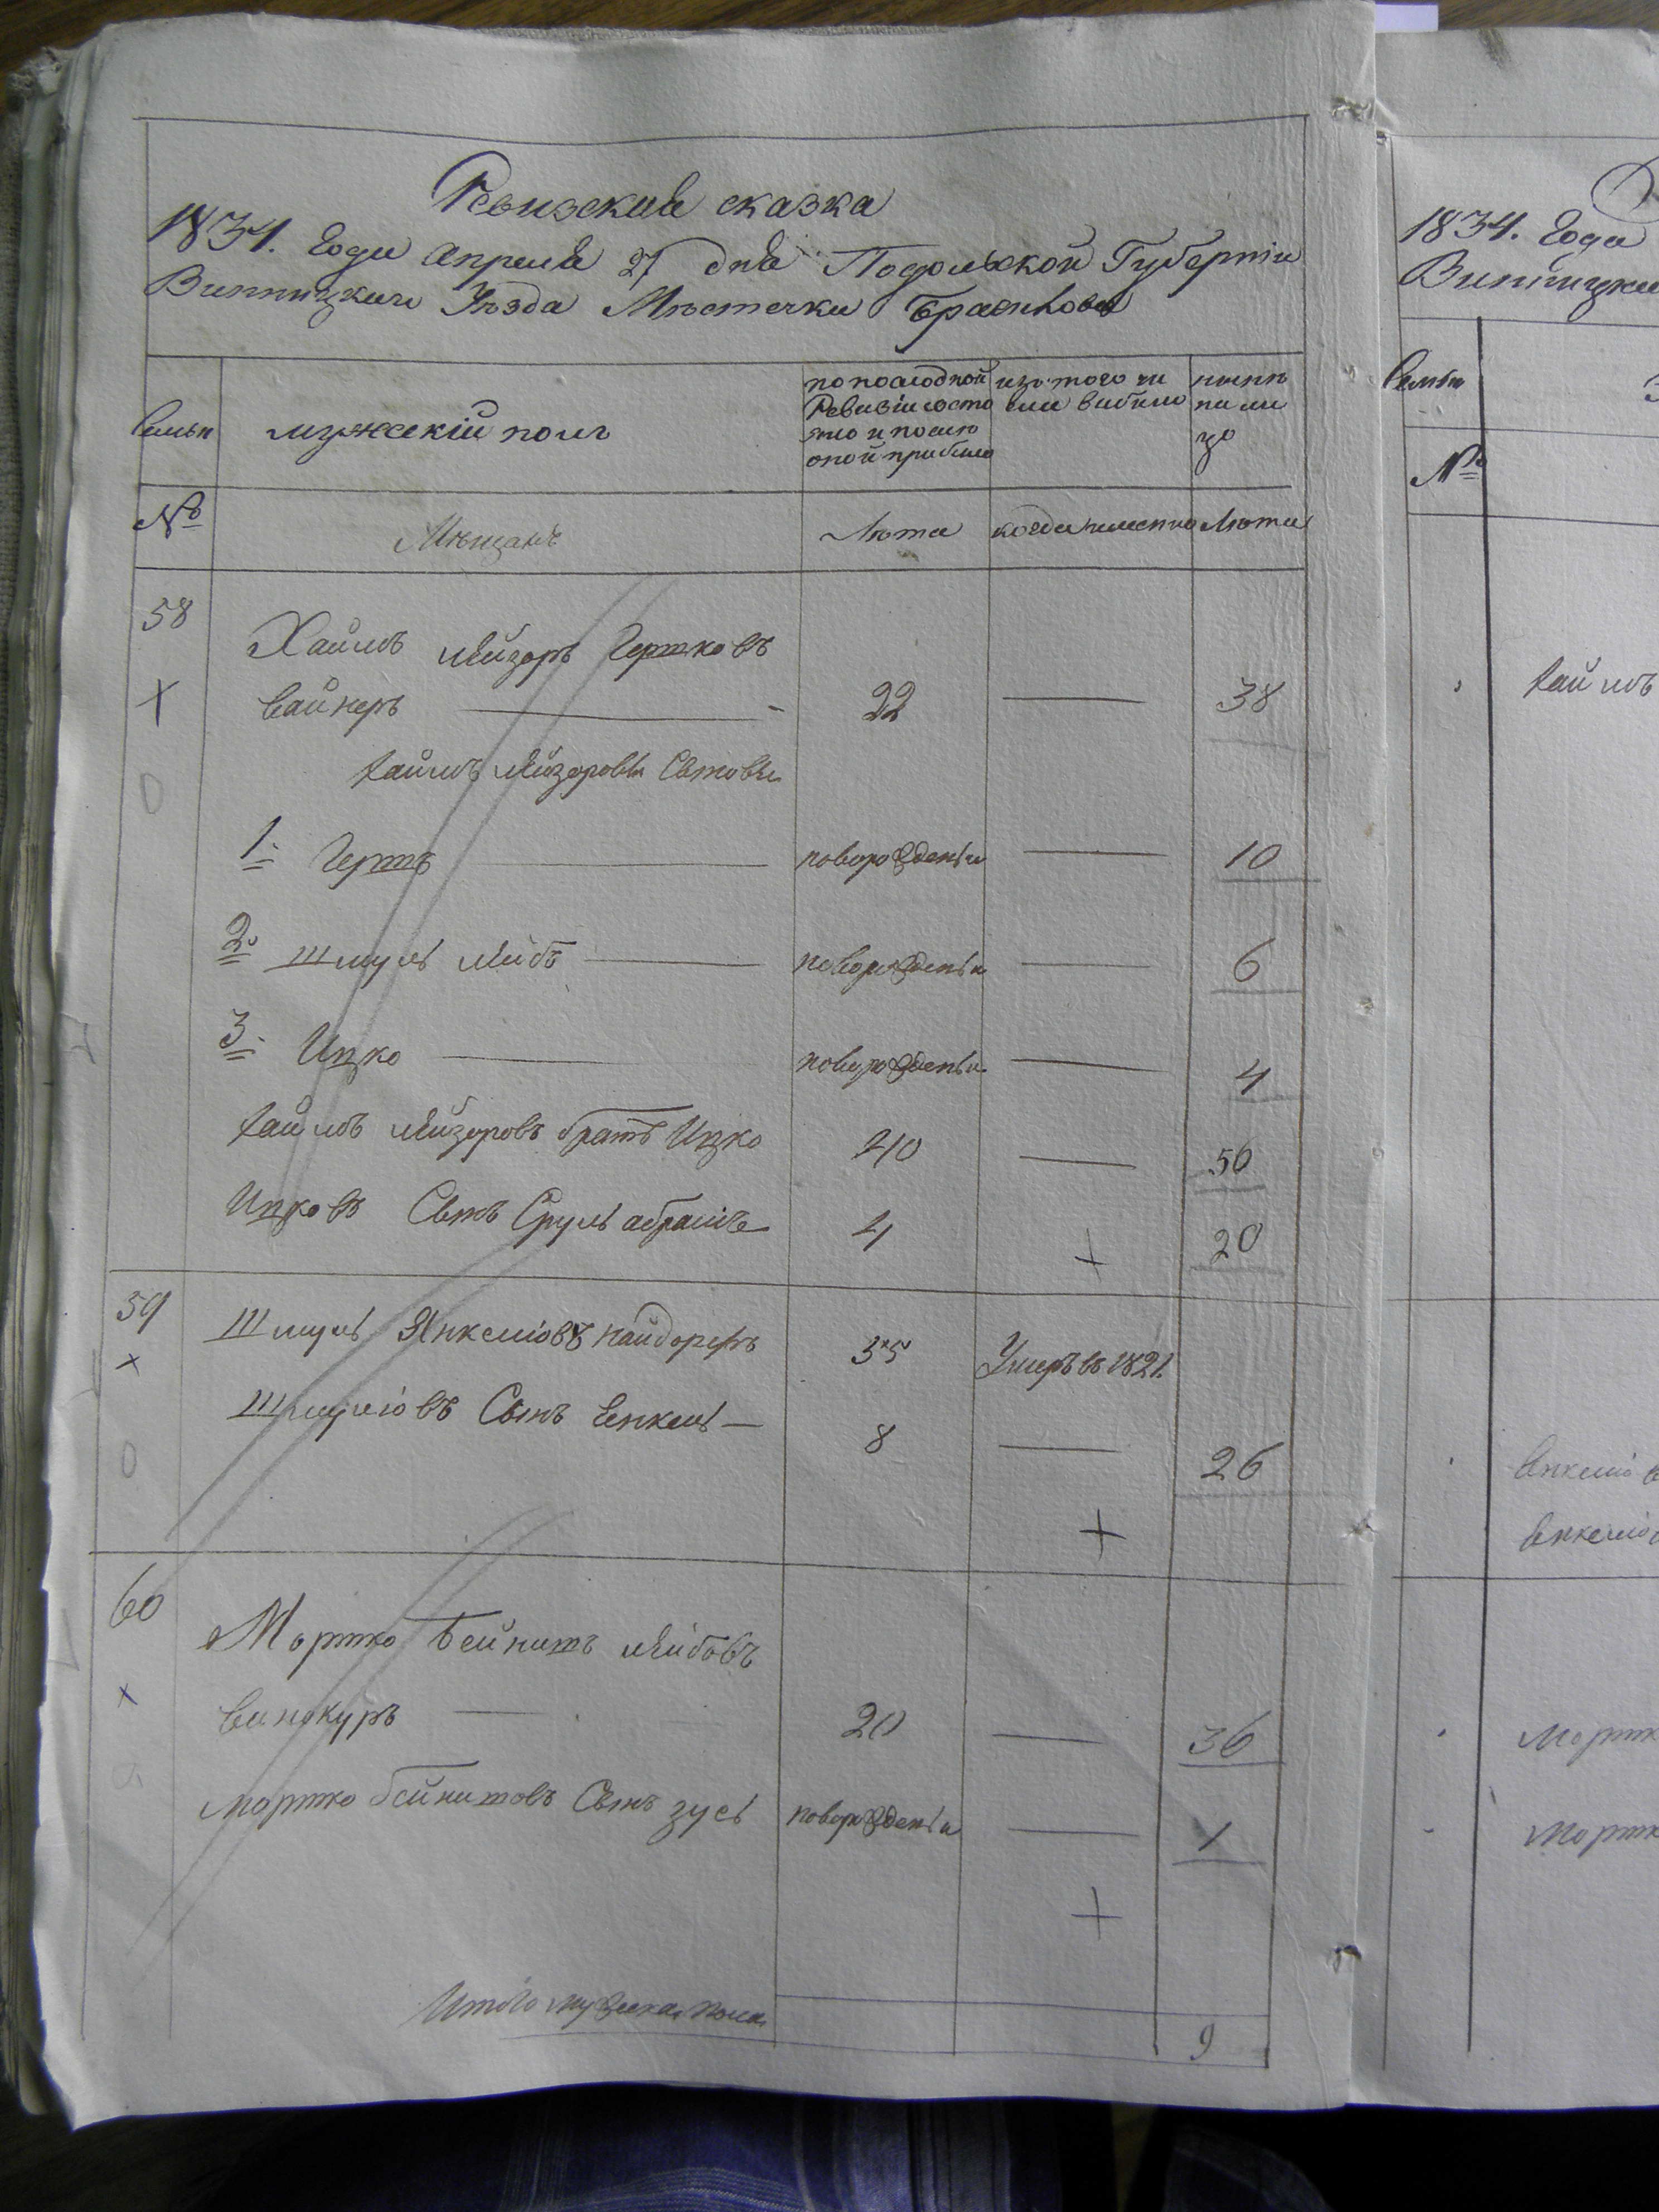 Ревизская сказка
1834. Года апреля 27 дня Подольской Губерніи
Винницкаго Уѣзда Мѣстечка Браилова
Семьи
мужескій полъ
по последней
Ревизіи состо
яло и после
оной прибыло
изъ того чи
сла выбыло
ныне
на ли
цо
№
Мѣщанъ
Лѣта
когда именно
Лѣта
58
Хаимъ Лейзоръ Гершковъ
Вайнеръ
22
38
Хаимъ Лейзоровы Сыновья
1. Гершъ
новорожденъи
10
2. Шмуль Лейбъ
новорожденъи
6
3. Ицко
новорожденъи
4
Хаимъ Лейзоровъ братъ Ицко
40
56
Ицковъ Сынъ Сруль абрамъ
4
+
20
59
Шмуль Янкеліовъ
35
Умеръ въ 1821.
Шмуліовъ Сынъ Енкель
8
26
+
60
Мортко Бейнишъ Лейбовъ
Винокуръ
20
36
Мортко бейнишовъ Сынъ зусь
новорожденъи
1
+
Итого мужеска пола
9
1834. Года
Винницка
Семьи
№
Хаимъ
Енкеліов
Енкеліо
Мортк
Мортк